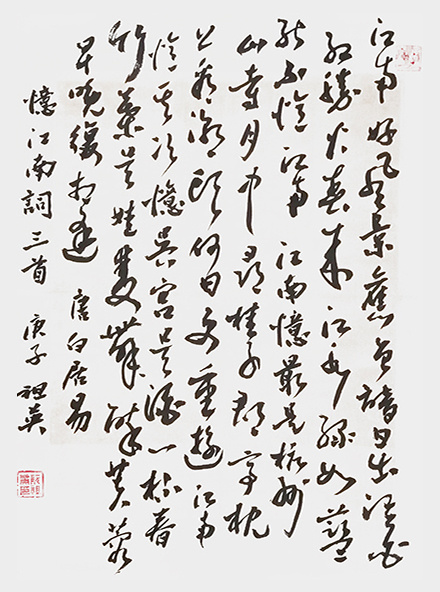 江南好風景舊曾諳日出江花
紅勝火春來江水綠如藍
能不憶江南 江南憶最是杭州
山寺月中尋桂子郡亭枕
上看潮頭何日更重遊江南
憶其次憶吳宮吳酒一杯春
竹葉吳娃雙舞醉芙蓉
早晚復相逢 唐白居易
憶江南詞三首 庚子祖英